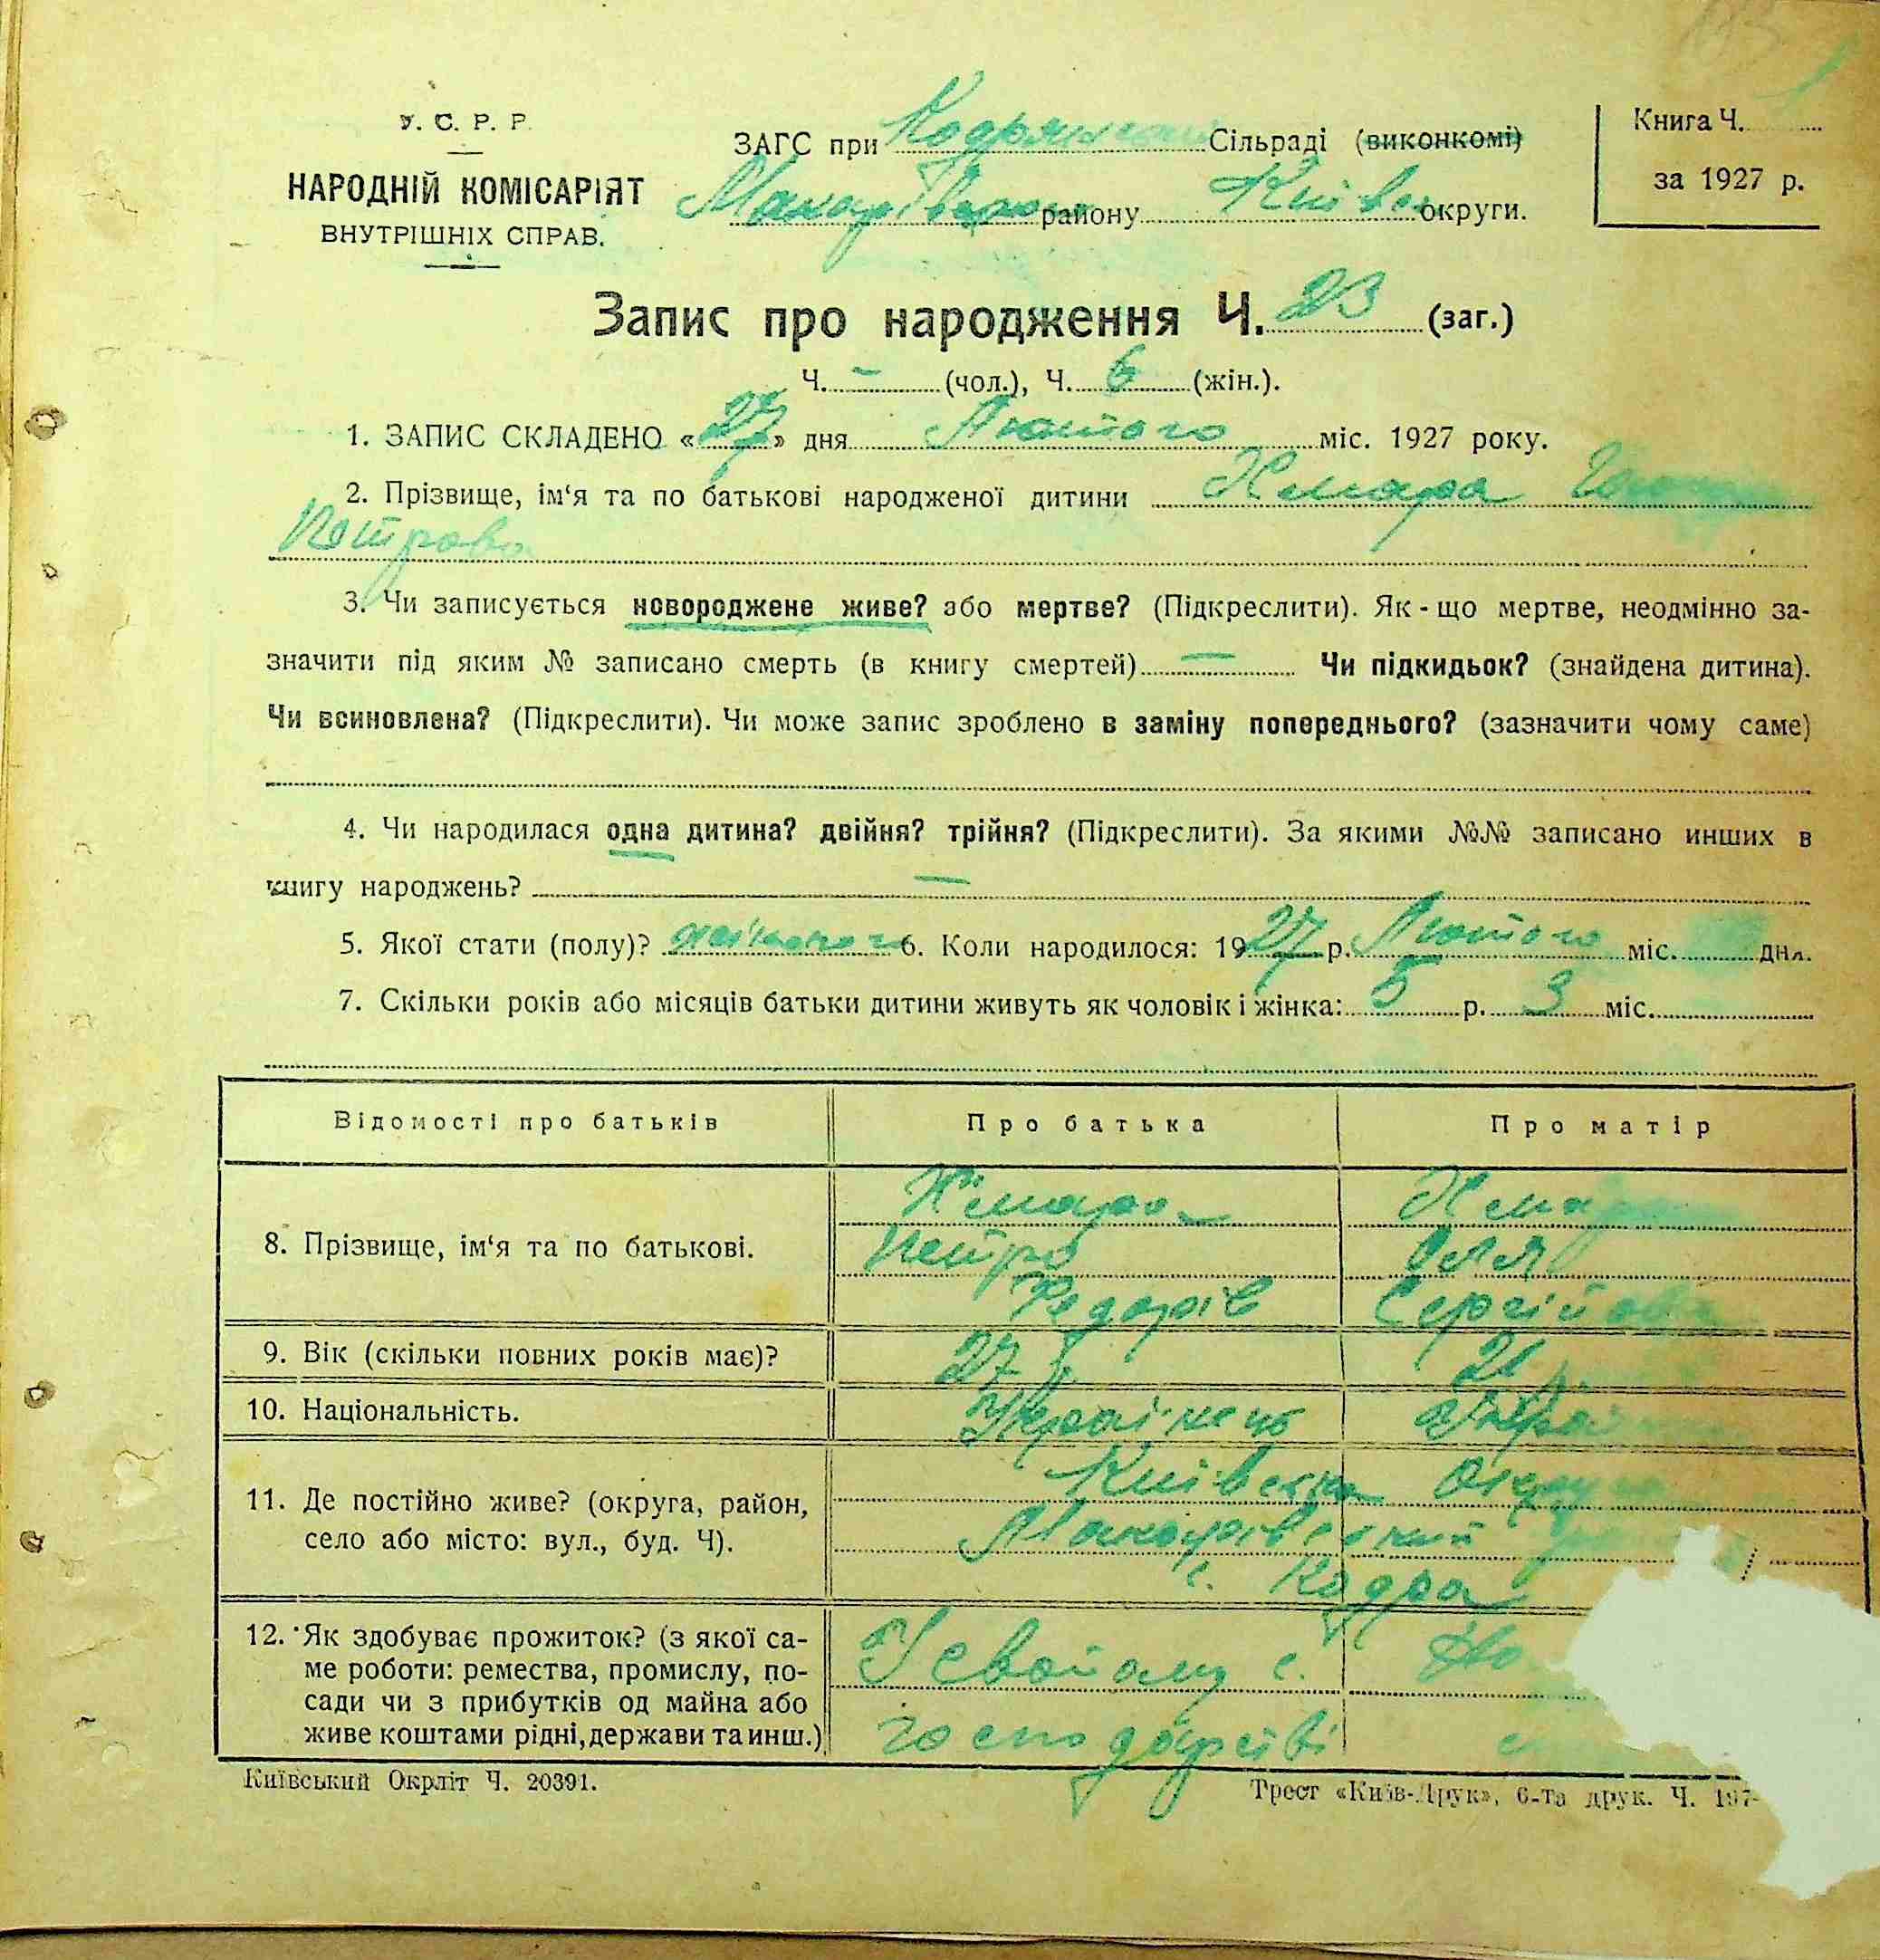 У. С. Р. Р.
НАРОДНІЙ КОМІСАРІЯТ
ВНУТРІШНІХ СПРАВ.
ЗАГС при Кодрянській Сільраді (виконкомі)
Макарівського району Київської округи.
Книга Ч.
за 1927 р.
Запис про народження Ч. 23 (заг.)
Ч. – (чол.), Ч. 6 (жін.).
1. ЗАПИС СКЛАДЕНО «27» дня Лютого міс. 1927 року.
2. Прізвище, ім‘я та по батькові народженої дитини Хмара
Петрова
3. Чи записується новороджене живе? або мертве? (Підкреслити). Як-що мертве, неодмінно за-
значити під яким № записано смерть (в книгу смертей) — Чи підкидьок? (знайдена дитина).
Чи всиновлена? (Підкреслити). Чи може запис зроблено в заміну попереднього? (зазначити чому саме)
4. Чи народилася одна дитина? двійня? трійня? (Підкреслити). За якими №№ записано инших в
книгу народжень? —
5. Якої стати (полу)? жіночого 6. Коли народилося: 1927 р. Лютого міс. дня.
7. Скільки років або місяців батьки дитини живуть як чоловік і жінка: 5 р. 3 міс.
Відомості про батьків Про батька Про матір
8. Прізвище, ім‘я та по батькові.
Хмара Хмара
Петро
Федорів Сергійов
9. Вік (скільки повних років має)? 27 р. 21
10. Національність. Українець Украї
11. Де постійно живе? (округа, район,
село або місто: вул., буд. Ч).
Київська Округа
Макарівський
с. Кодра
12. Як здобуває прожиток? (з якої са-
ме роботи: ремества, промислу, по-
сади чи з прибутків од майна або
живе коштами рідні, держави та инш.)
У свойому с.
господарстві
Київський Окрліт Ч. 20391.
Трест «Київ-Друк», 6-та друк. Ч. 197-